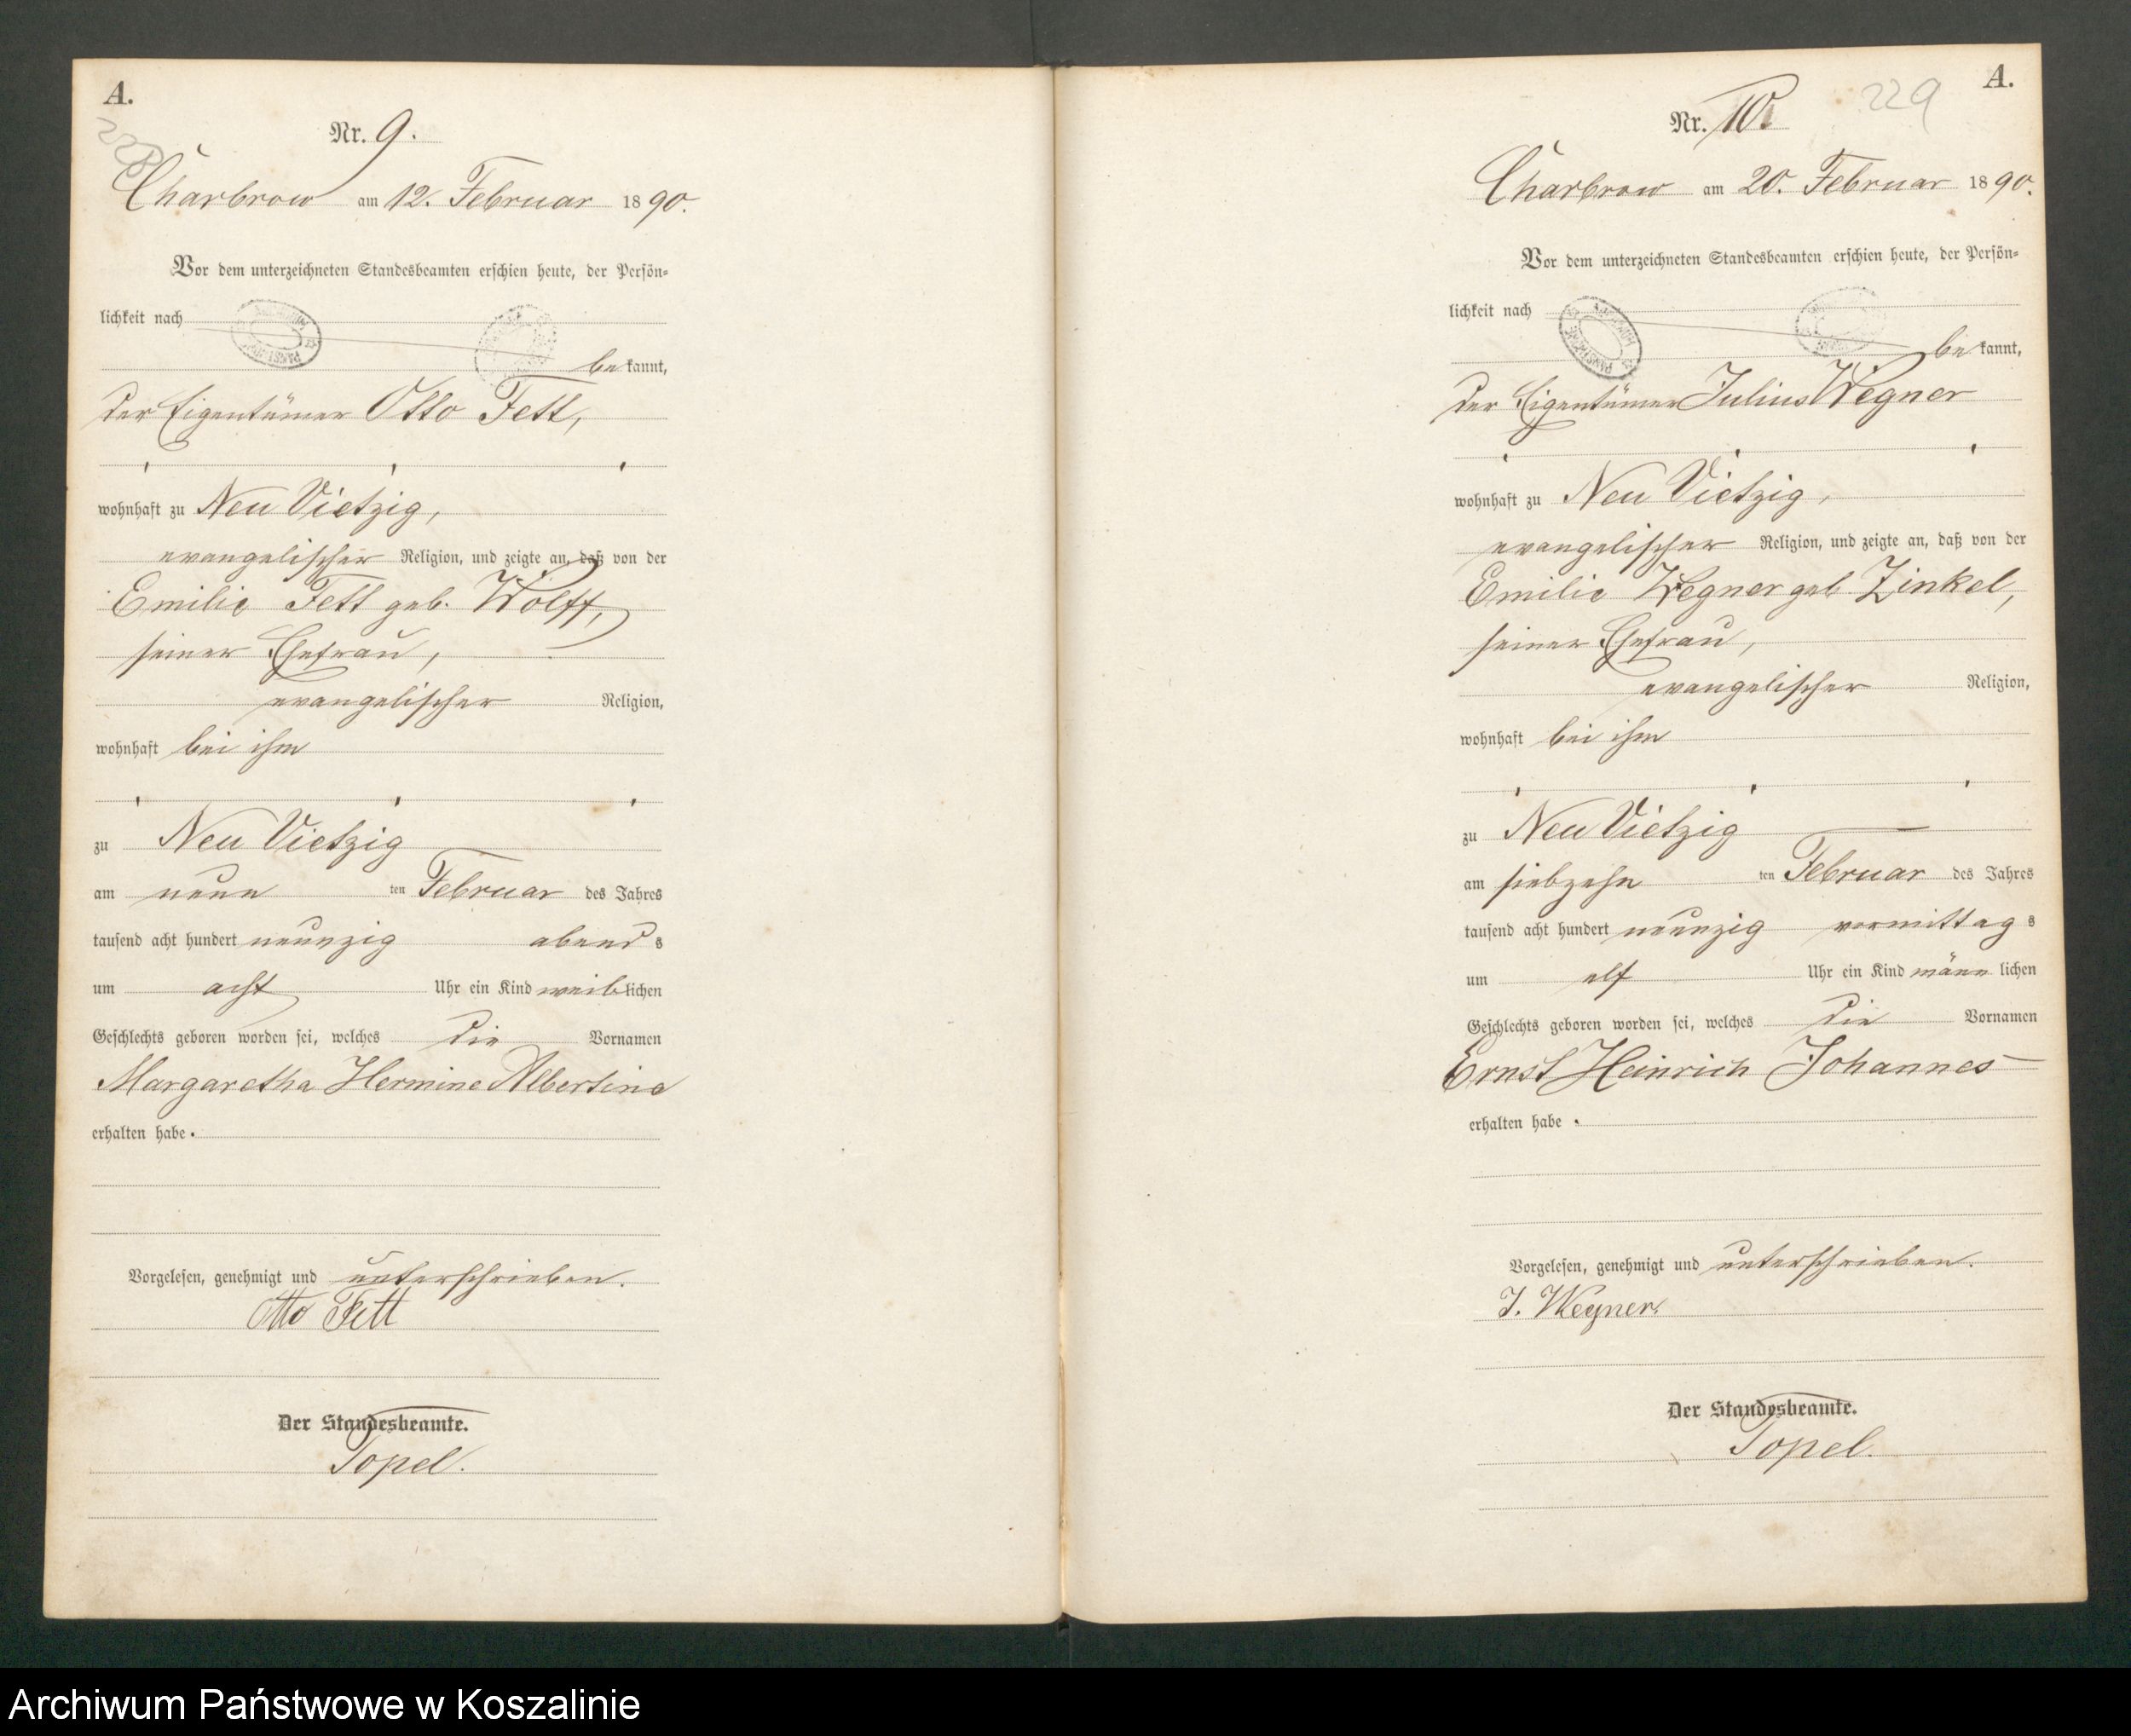 A.
228
Nr. 9.
Charbrow am 12. Februar 1890.
Vor dem unterzeichneten Standesbeamten erschien heute, der Persön-
lichkeit nach
bekannt,
der Eigentümer Otto Fett,
wohnhaft zu Neu Vietzig,
evangelischer Religion, und zeigte an, daß von der
Emilie Fett geb. Wolff,
seiner Ehefrau,
evangelischer Religion,
wohnhaft bei ihm
zu Neu Vietzig
am neun ten Februar des Jahres
tausend acht hundert neunzig abends
um acht Uhr ein Kind weiblichen
Geschlechts geboren worden sei, welches die Vornamen
Margaretha Hermine Albertine
erhalten habe.
Vorgelesen, genehmigt und unterschrieben.
Otto Fett
Der Standesbeamte.
Topel.
A.
229
Nr. 10.
Charbrow am 20. Februar 1890.
Vor dem unterzeichneten Standesbeamten erschien heute, der Persön-
lichkeit nach
bekannt,
der Eigentümer Julius Wegner
wohnhaft zu Neu Vietzig,
evangelischer Religion, und zeigte an, daß von der
Emilie Wegner geb Zinkel,
seiner Ehefrau,
evangelischer Religion,
wohnhaft bei ihm
zu Neu Vietzig
am siebzehn ten Februar des Jahres
tausend acht hundert neunzig vormittags
um elf Uhr ein Kind männlichen
Geschlechts geboren worden sei, welches die Vornamen
Ernst Heinrich Johannes
erhalten habe.
Vorgelesen, genehmigt und unterschrieben.
J. Wegner.
Der Standesbeamte.
Topel.
Archiwum Państwowe w Koszalinie